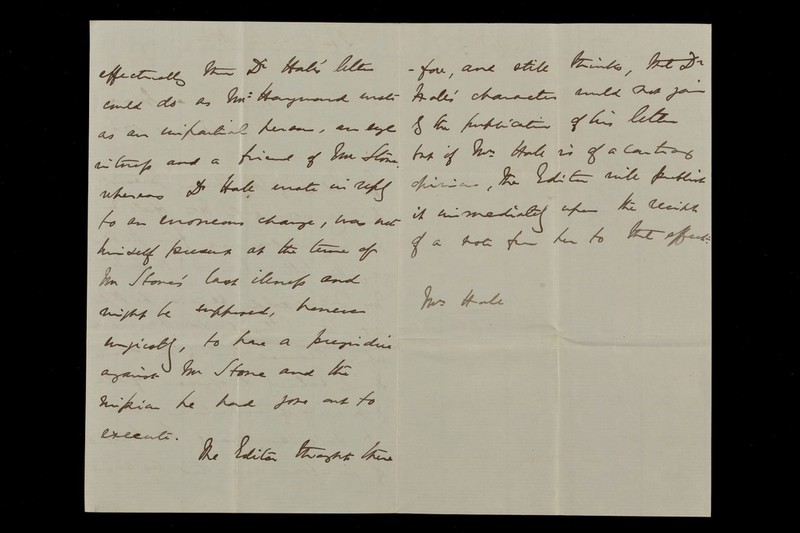 effectually than Dr Hale's letter
could do as Mr Hayward wrote
as an impartial person, an eye
witness and a friend of Mr Stone,
whereas Dr Hale wrote in reply
to an erroneous charge, was not
himself present at the time of
Mr Stone's last illness and
might be supposed, however
unjustly, to have a prejudice
against Mr Stone and the
mission he had gone out to
execute.
The Editor thought there
-fore, and still thinks, that Dr
Hale's character would not gain
by the publication of his letter
but if Mrs Hale is of a contrary
opinion, the Editor will publish
it immediately upon the receipt
of a note from her to that effect.
Mrs Hale